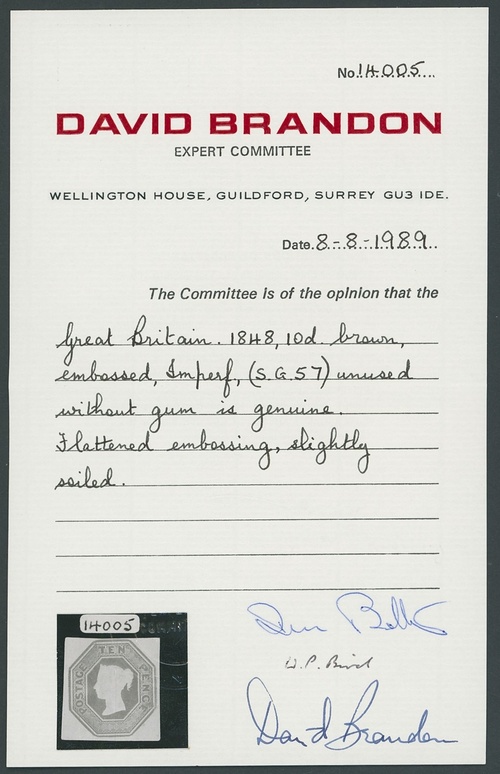 No. 14005
DAVID BRANDON
EXPERT COMMITTEE
WELLINGTON HOUSE, GUILDFORD, SURREY GU3 IDE.
Date. 8-8-1989
The Committee is of the opinion that the
Great Britain. 1848, 10d. brown,
embossed, Imperf, (S.G.57) unused
without gum is genuine.
Flattened embossing, slightly
soiled.
14005
POSTAGE TEN PENCE
W.P. Bird
David Brandon